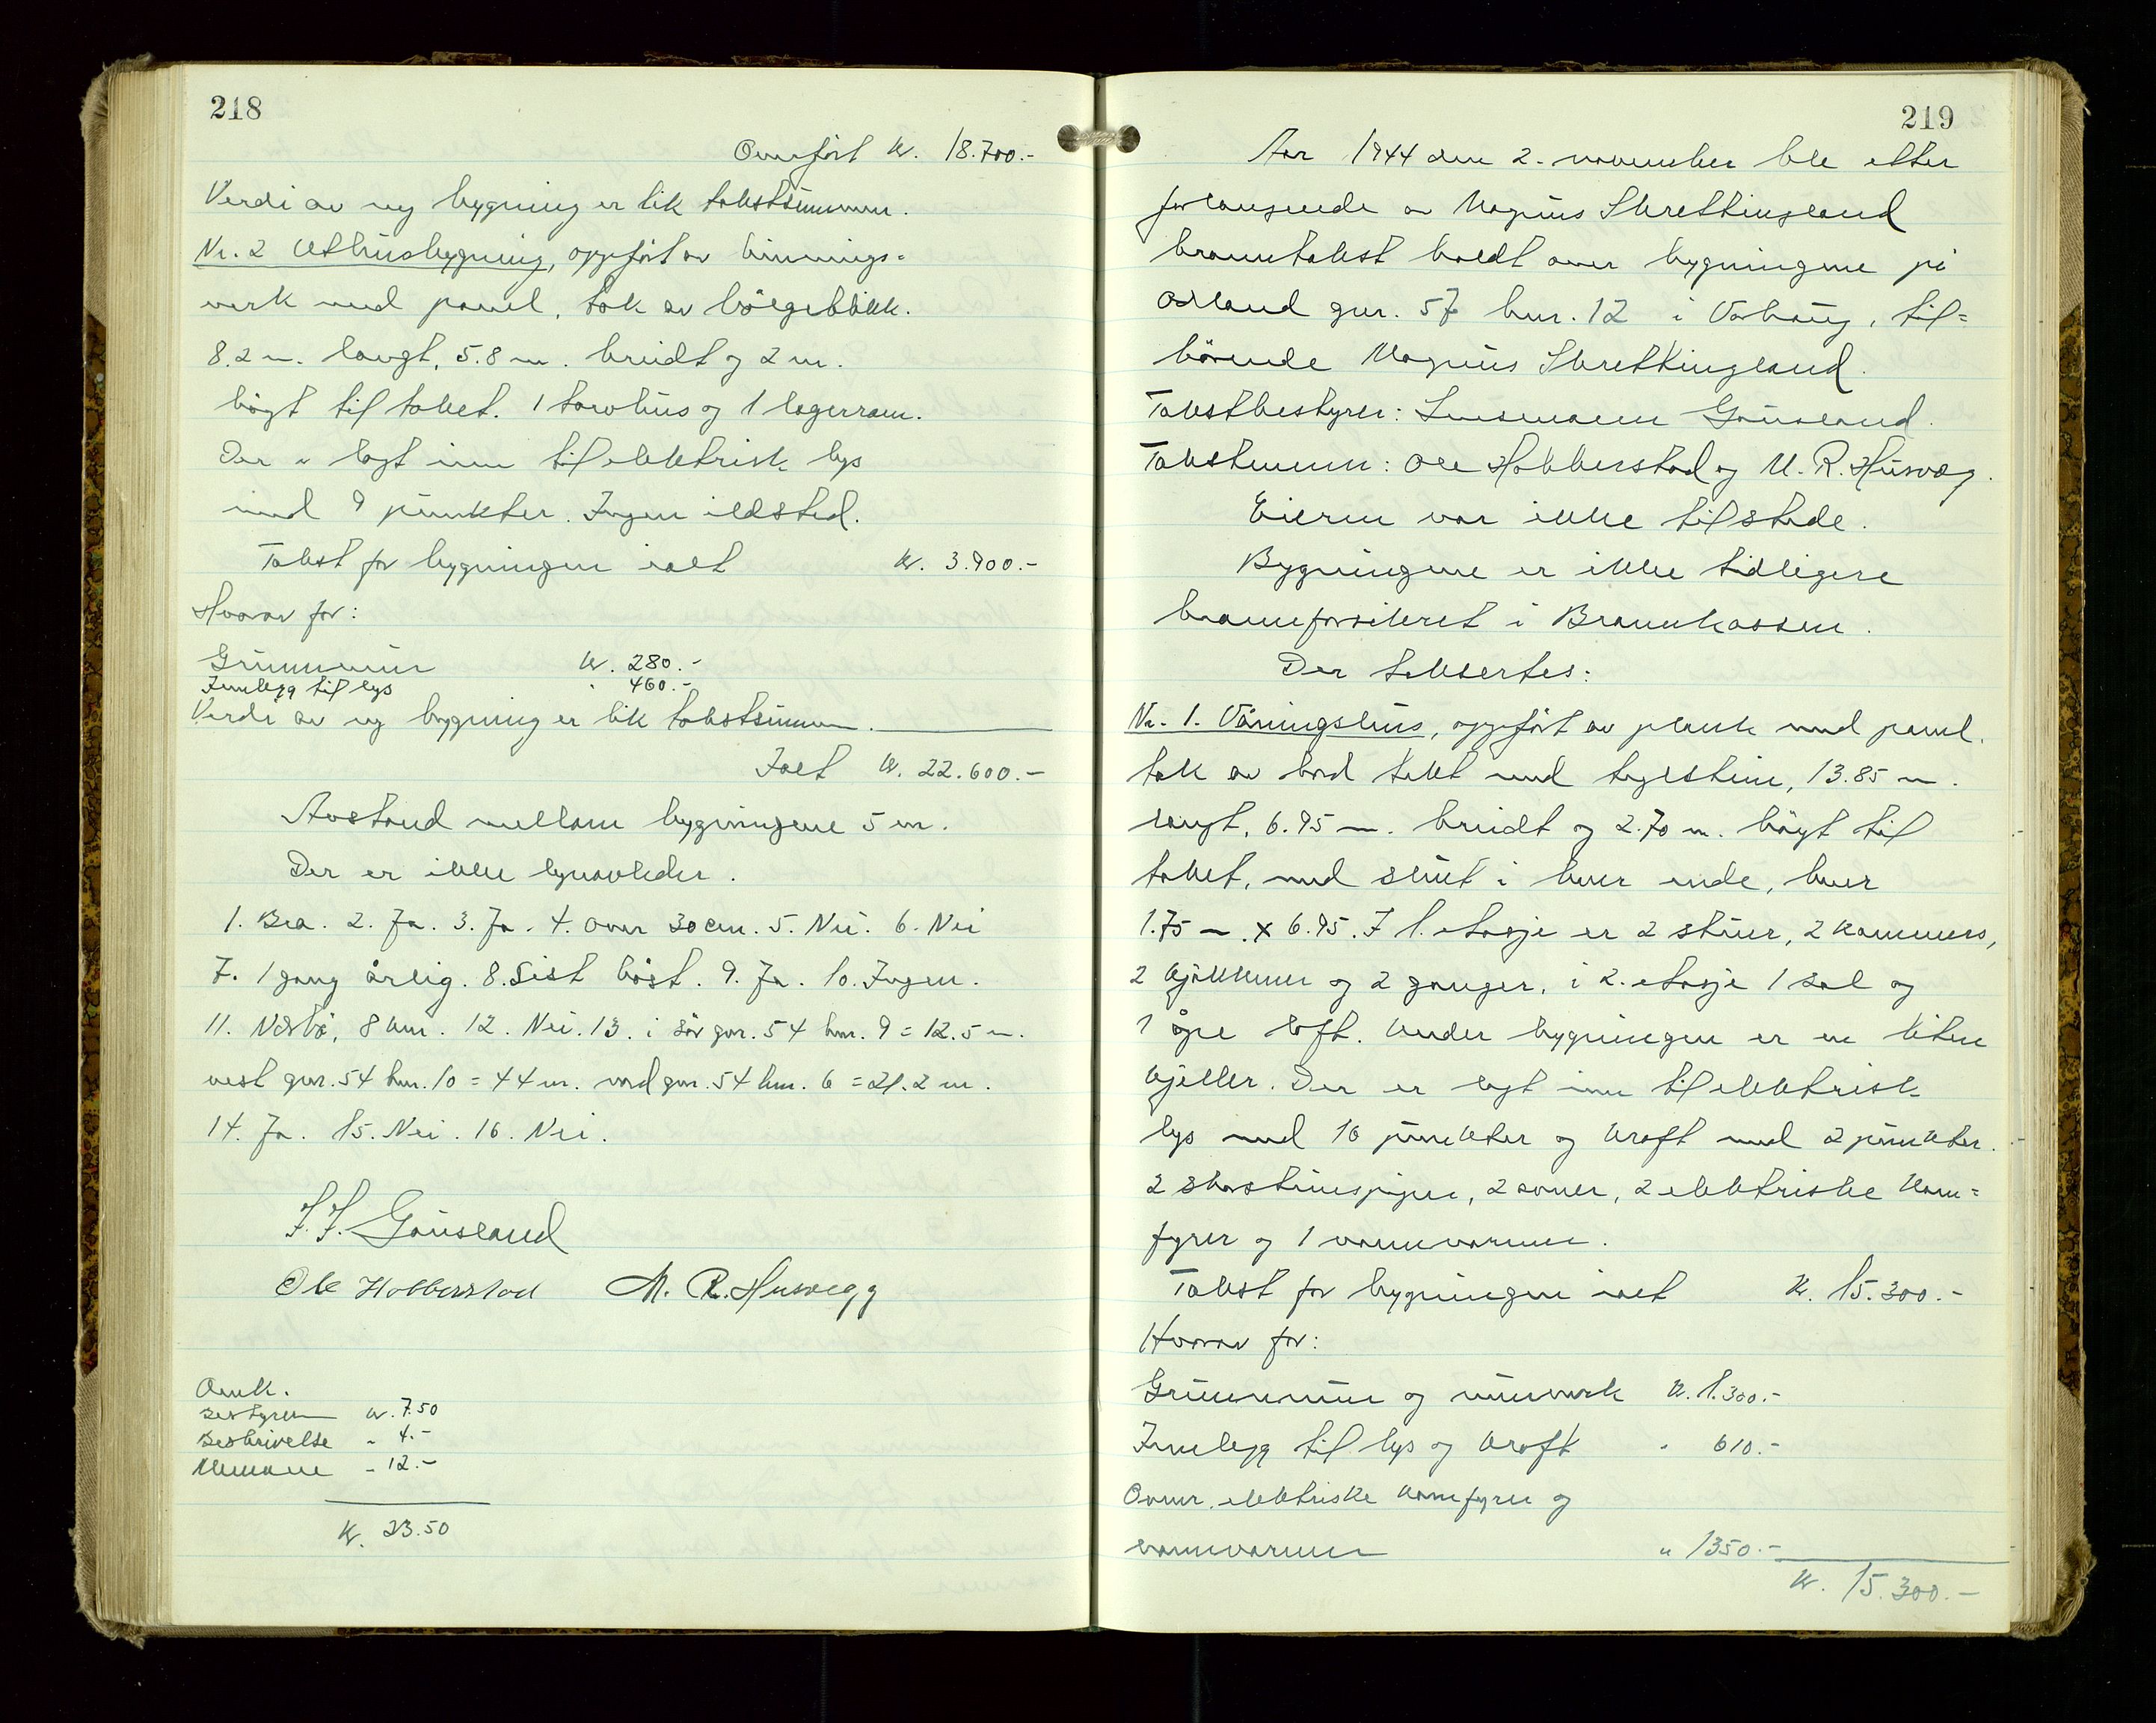 218
Overført kr. 18.700.-
Verdi av ny bygning er lik takstsummen.
Nr. 2 Uthusbygning, oppført av binnings=
verk med panel, tak av bølgeblikk.
8.2 m. langt, 5.8 m. breidt og 2 m.
høgt til taket. 1 torvhus og 1 lagerrom.
Der er lagt inn til elektrisk lys
med 9 punkter. Ingen ildsted.
Takst for bygningen ialt kr. 3.900.-
Hvorav for:
Grunnmur kr. 280.-
Innlegg til lys " 460.-
Verdi av ny bygning er lik takstsummen.
Ialt kr. 22.600.-
Avstand mellom bygningene 5 m.
Der er ikke lynavleder.
1. Bra. 2. Ja. 3. Ja. 4. Over 30 cm. 5. Nei. 6. Nei
7. 1 gang årlig. 8. Sist høst. 9. Ja. 10. Ingen.
11. Nærbø, 8 km. 12. Nei. 13. i sør gnr. 54 bnr. 9 = 12.5 m.
vest gnr. 54 bnr. 10 = 44 m. nord gnr. 54 bnr. 6 = 21.2 m.
14. Ja. 15. Nei. 16. Nei.
J. J. Gausland
Ole Hobberstad M. R. Husvegg
Omk.
Bestyrer kr. 7.50
Beskrivelse " 4.-
Mennene " 12.-
kr. 23.50
219
Aar 1944 den 2. november ble etter
forlangende av Magnus Skrettingland
branntakst holdt over bygningene på
Ødland gnr. 57 bnr. 12 i Varhaug, til=
hørende Magnus Skrettingland.
Takstbestyrer: Lensmann Gausland.
Takstmenn: Ole Hobberstad og M. R. Husveg.
Eieren var ikke tilstede.
Bygningene er ikke tidligere
brannforsikret i Brannkassen.
Der taksertes:
Nr. 1. Våningshus, oppført av plank med panel.
tak av bord tekt med teglstein, 13.85 m.
langt, 6.95 m. breidt og 2.70 m. høgt til
taket, med skut i hver ende, hver
1.75 m. x 6.95. I 1. etasje er 2 stuer, 2 kammers,
2 kjøkkener og 2 ganger, i 2. etasje 1 sal og
1 åpe loft. Under bygningen er en liten
kjeller. Der er lagt inn til elektrisk
lys med 16 punkter og kraft med 2 punkter.
2 skorsteinspiper, 2 ovner, 2 elektriske kom=
fyrer og 1 vannvarmer.
Takst for bygningen ialt kr. 15.300.-
Hvorav for:
Grunnmur og murverk kr. 1.300.-
Innlegg til lys og kraft " 610.-
Ovner, elektriske komfyrer og
vannvarmer " 1350.-
kr. 15.300.-